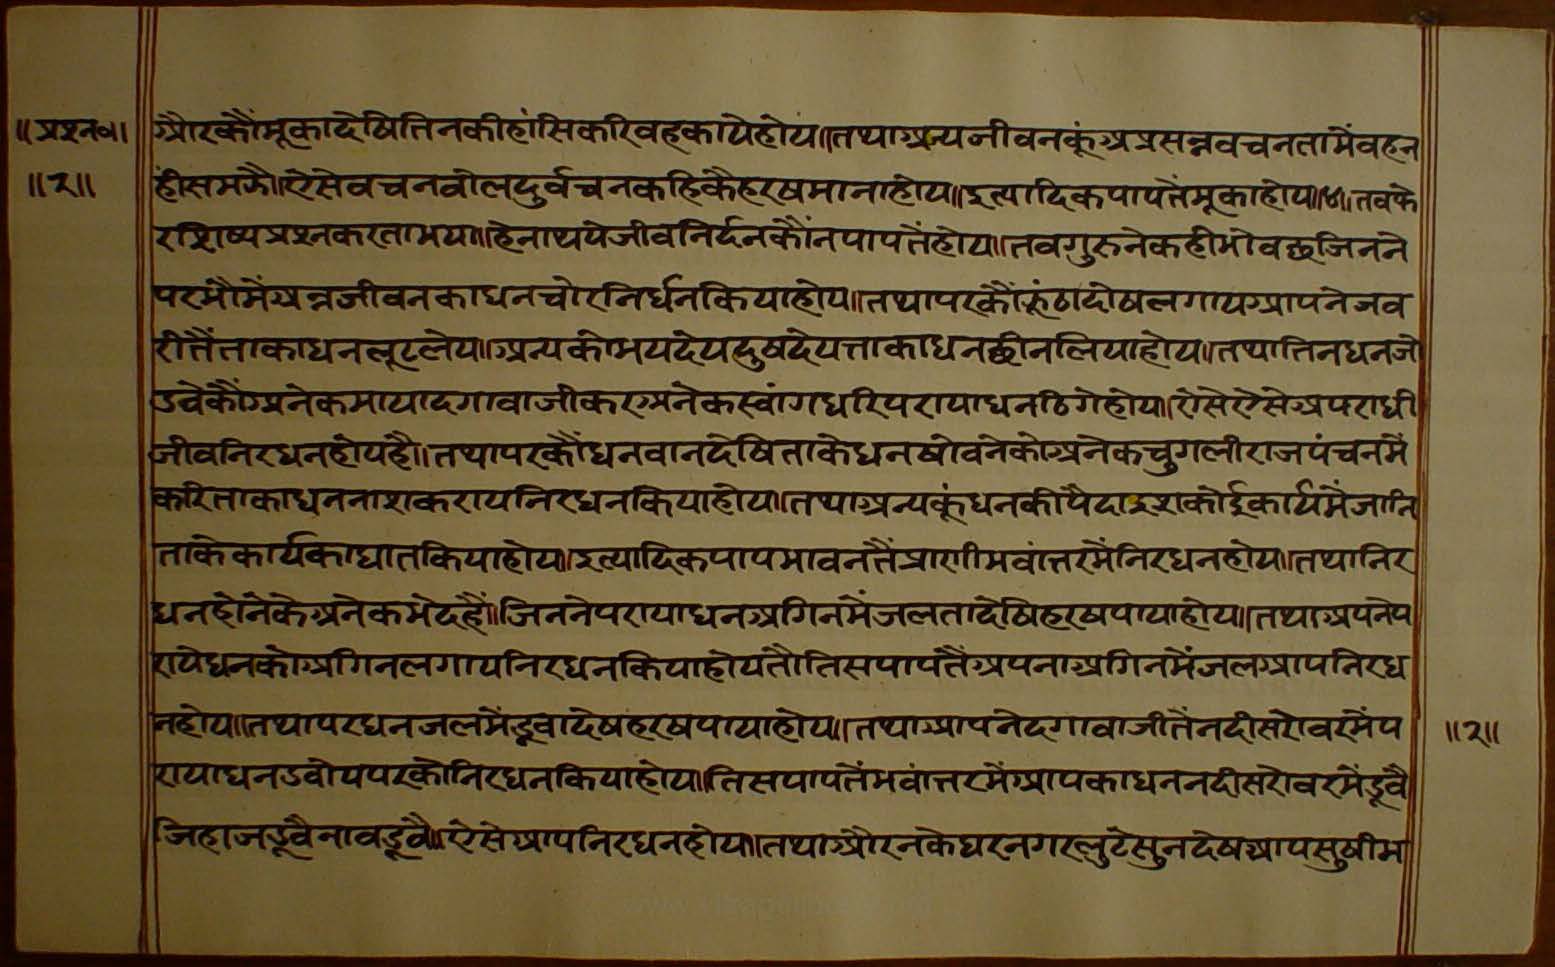 ॥प्रश्नव॥
॥२॥
औरकौंमूकादेषितिनकीहांसिकरिवहकायेहोय॥तथाअन्यजीवनकूंअप्रसन्नवचनतामैंवहन
हींसमझै॥ऐसेवचनवोलदुर्वचनकहिकैहरषमानाहोय॥इत्यादिकपापतैंमूकाहोय॥४॥तवफे
रशिष्यप्रश्नकरताभया॥हेनाथयेजीवनिर्दनकौंनपापतैंहोय॥तवगुरुनेकहीभोवछजिनने
परभौमैंअन्नजीवनकाधनचोरनिर्धनकियाहोय॥तथापरकौंझूंठादोषलगायआपनेजव
रीतैंताकाधनलूटलेय॥अन्यकोभयदेयदुषदेयत्ताकाधनछीनलियाहोय॥तथातिनधनजो
डवेकौंअनेकमायादगावाजीकरअनेकस्वांगधरिपरायाधनठिगेहोय॥ऐसेऐसेअपराधी
जीवनिरधनहोयहै॥तथापरकौंधनवानदेषिताकेधनषोवनेकोअनेकचुगलीराजपंचनमैं
करिताकाधननाशकरायनिरधनकियाहोय॥तथाअन्यकूंधनकीपैदाइशकोईकार्यमैंजानि
ताकेकार्यकाघातकियाहोय॥इत्यादिकपापभावनतैंप्राणीभवांत्तरमैंनिरधनहोय॥तथानिर
धनहोनेकेअनेकभेदहैं॥जिननेपरायाधनअगिनमैंजलतादेषिहरषपायाहोय॥तथाअपनेप
रायेधनकोअगिनलगायनिरधनकियाहोयतौतिसपापतैंअपनाअगिनमैंजलआपनिरध
नहोय॥तथापरधनजलमैंडूवादेषहरषपायाहोय॥तथाआपनेदगावाजीतैंनदीसरोवरमैंप
रायाधनडवोयपरकोनिरधनकियाहोय॥तिसपापतैंभवांत्तरमैंआपकाधननदीसरोवरमैंडूवै
जिहाजडूवैनावडूवै॥ऐसेआपनिरधनहोय॥तथाऔरनकेघरनगरलुटेसुनदेषआपसुषीभ
॥२॥